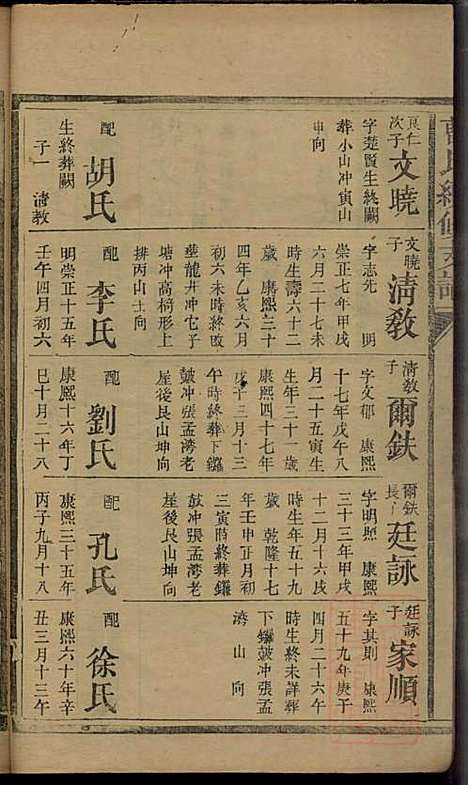 良仁
次子
文曉
字楚賢生終闕
葬小山冲寅山
申向
配
胡氏
生終葬闕
子一 清教
文曉
子
清教
字志先 明
崇正七年甲戌
六月二十七未
時生壽六十二
歲 康熙三十
四年乙亥六月
初六未時終敗
葬龍井冲屯子
塘冲高椅形上
排丙山壬向
配
李氏
明崇正十五年
壬午四月初六
清教
子
爾鈇
字文郁 康熙
十七年戊午八
月二十五寅生
生年三十一歲
康熙四十七年
戊子三月十三
午時終葬下鑼
鼓冲張孟湾老
屋後艮山坤向
配
劉氏
康熙十六年丁
巳十月二十八
爾鈇
長子
廷詠
字明煕 康熙
三十三年甲戌
十二月十六戌
時生年五十九
歲 乾隆十七
年壬申正月初
三寅時終葬鑼
鼓冲張孟湾老
屋後艮山坤向
配
孔氏
康熙三十五年
丙子九月十八
廷詠
子
家順
字其則 康熙
五十九年庚子
四月二十六午
時生終未詳葬
下鑼鼓冲張孟
湾山向
配
徐氏
康熙六十年辛
丑三月十三午